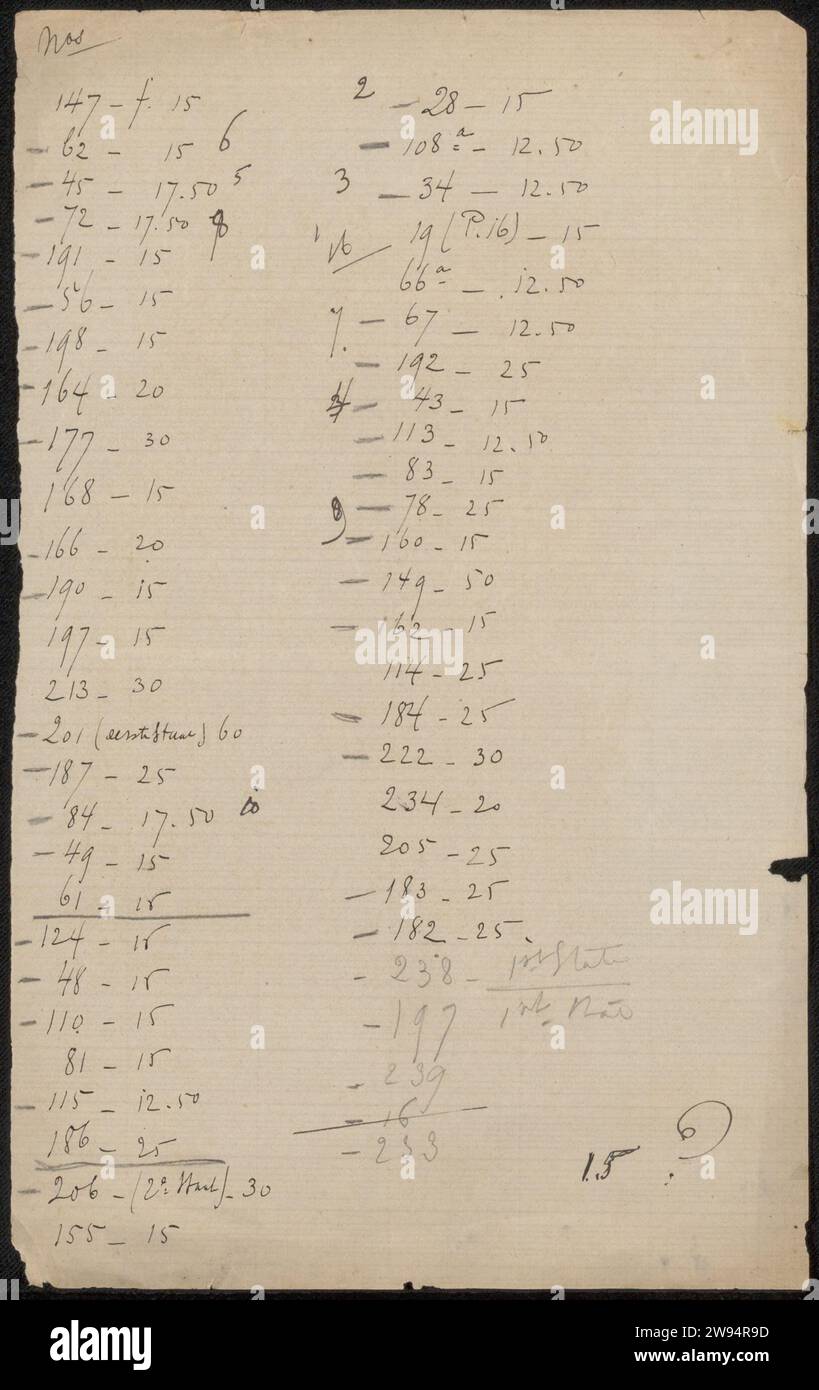 Nos
147 - f. 15
- 62 - 15 6
- 45 - 17.50 5
- 72 - 17.50 8
- 191 - 15
- 56 - 15
- 198 - 15
- 164 - 20
- 177 - 30
168 - 15
- 166 - 20
- 190 - 15
197 - 15
213 - 30
- 201 (eerste staat) 60
- 187 - 25
- 84 - 17.50 10
- 49 - 15
61 - 15
- 124 - 15
- 48 - 15
- 110 - 15
81 - 15
- 115 - 12.50
186 - 25
- 206 - (2e Staat) - 30
155 - 15
2 - 28 - 15
- 108a - 12.50
3 - 34 - 12.50
1 16 19 (P. 16) - 15
66a - 12.50
7. - 67 - 12.50
- 192 - 25
4 - 43 - 15
- 113 - 12.50
- 83 - 15
9 - 78 - 25
- 160 - 15
- 149 - 50
- 62 - 15
114 - 25
- 184 - 25
- 222 - 30
234 - 20
205 - 25
- 183 - 25
- 182 - 25.
- 238 - 1st State
- 197 1st
- 239
- 16
- 233
15 ?
alamy
alamy
alamy
alamy
a
a
a
a
a
a
a
a
a
a
a
alamy
Image ID: 2W94R9D
www.alamy.com